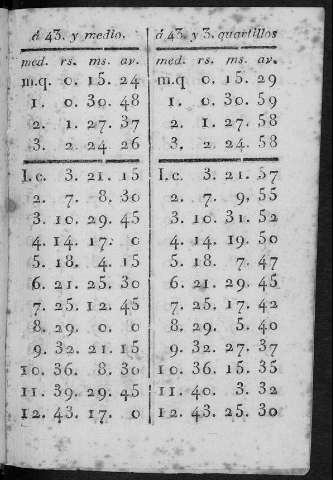 á 43. y medio.
med. rs. ms. av.
m.q. 0. 15. 24
1. 0. 30. 48
2. 1. 27. 37
3. 2 24 26
1.c. 3. 21. 15
2. 7. 8. 30
3. 10. 29. 45
4. 14. 17. 0
5. 18. 4. 15
6. 21. 25. 30
7. 25. 12. 45
8. 29. 0. 0
9. 32. 21. 15
10. 36. 8. 30
11. 39. 29. 45
12. 43. 17. 0
á 43. y 3. quartillos
med. rs. ms. av.
m.q 0. 15. 29
1. 0. 30. 59
2. 1. 27. 58
3. 2. 24. 58
1.c. 3. 21. 57
2. 7. 9, 55
3. 10. 31. 52
4. 14. 19. 50
5. 18. 7. 47
6. 21. 29. 45
7. 25. 17. 42
8. 29. 5. 40
9. 32. 27. 37
10. 36. 15. 35
11. 40. 3. 32
12. 43. 25. 30